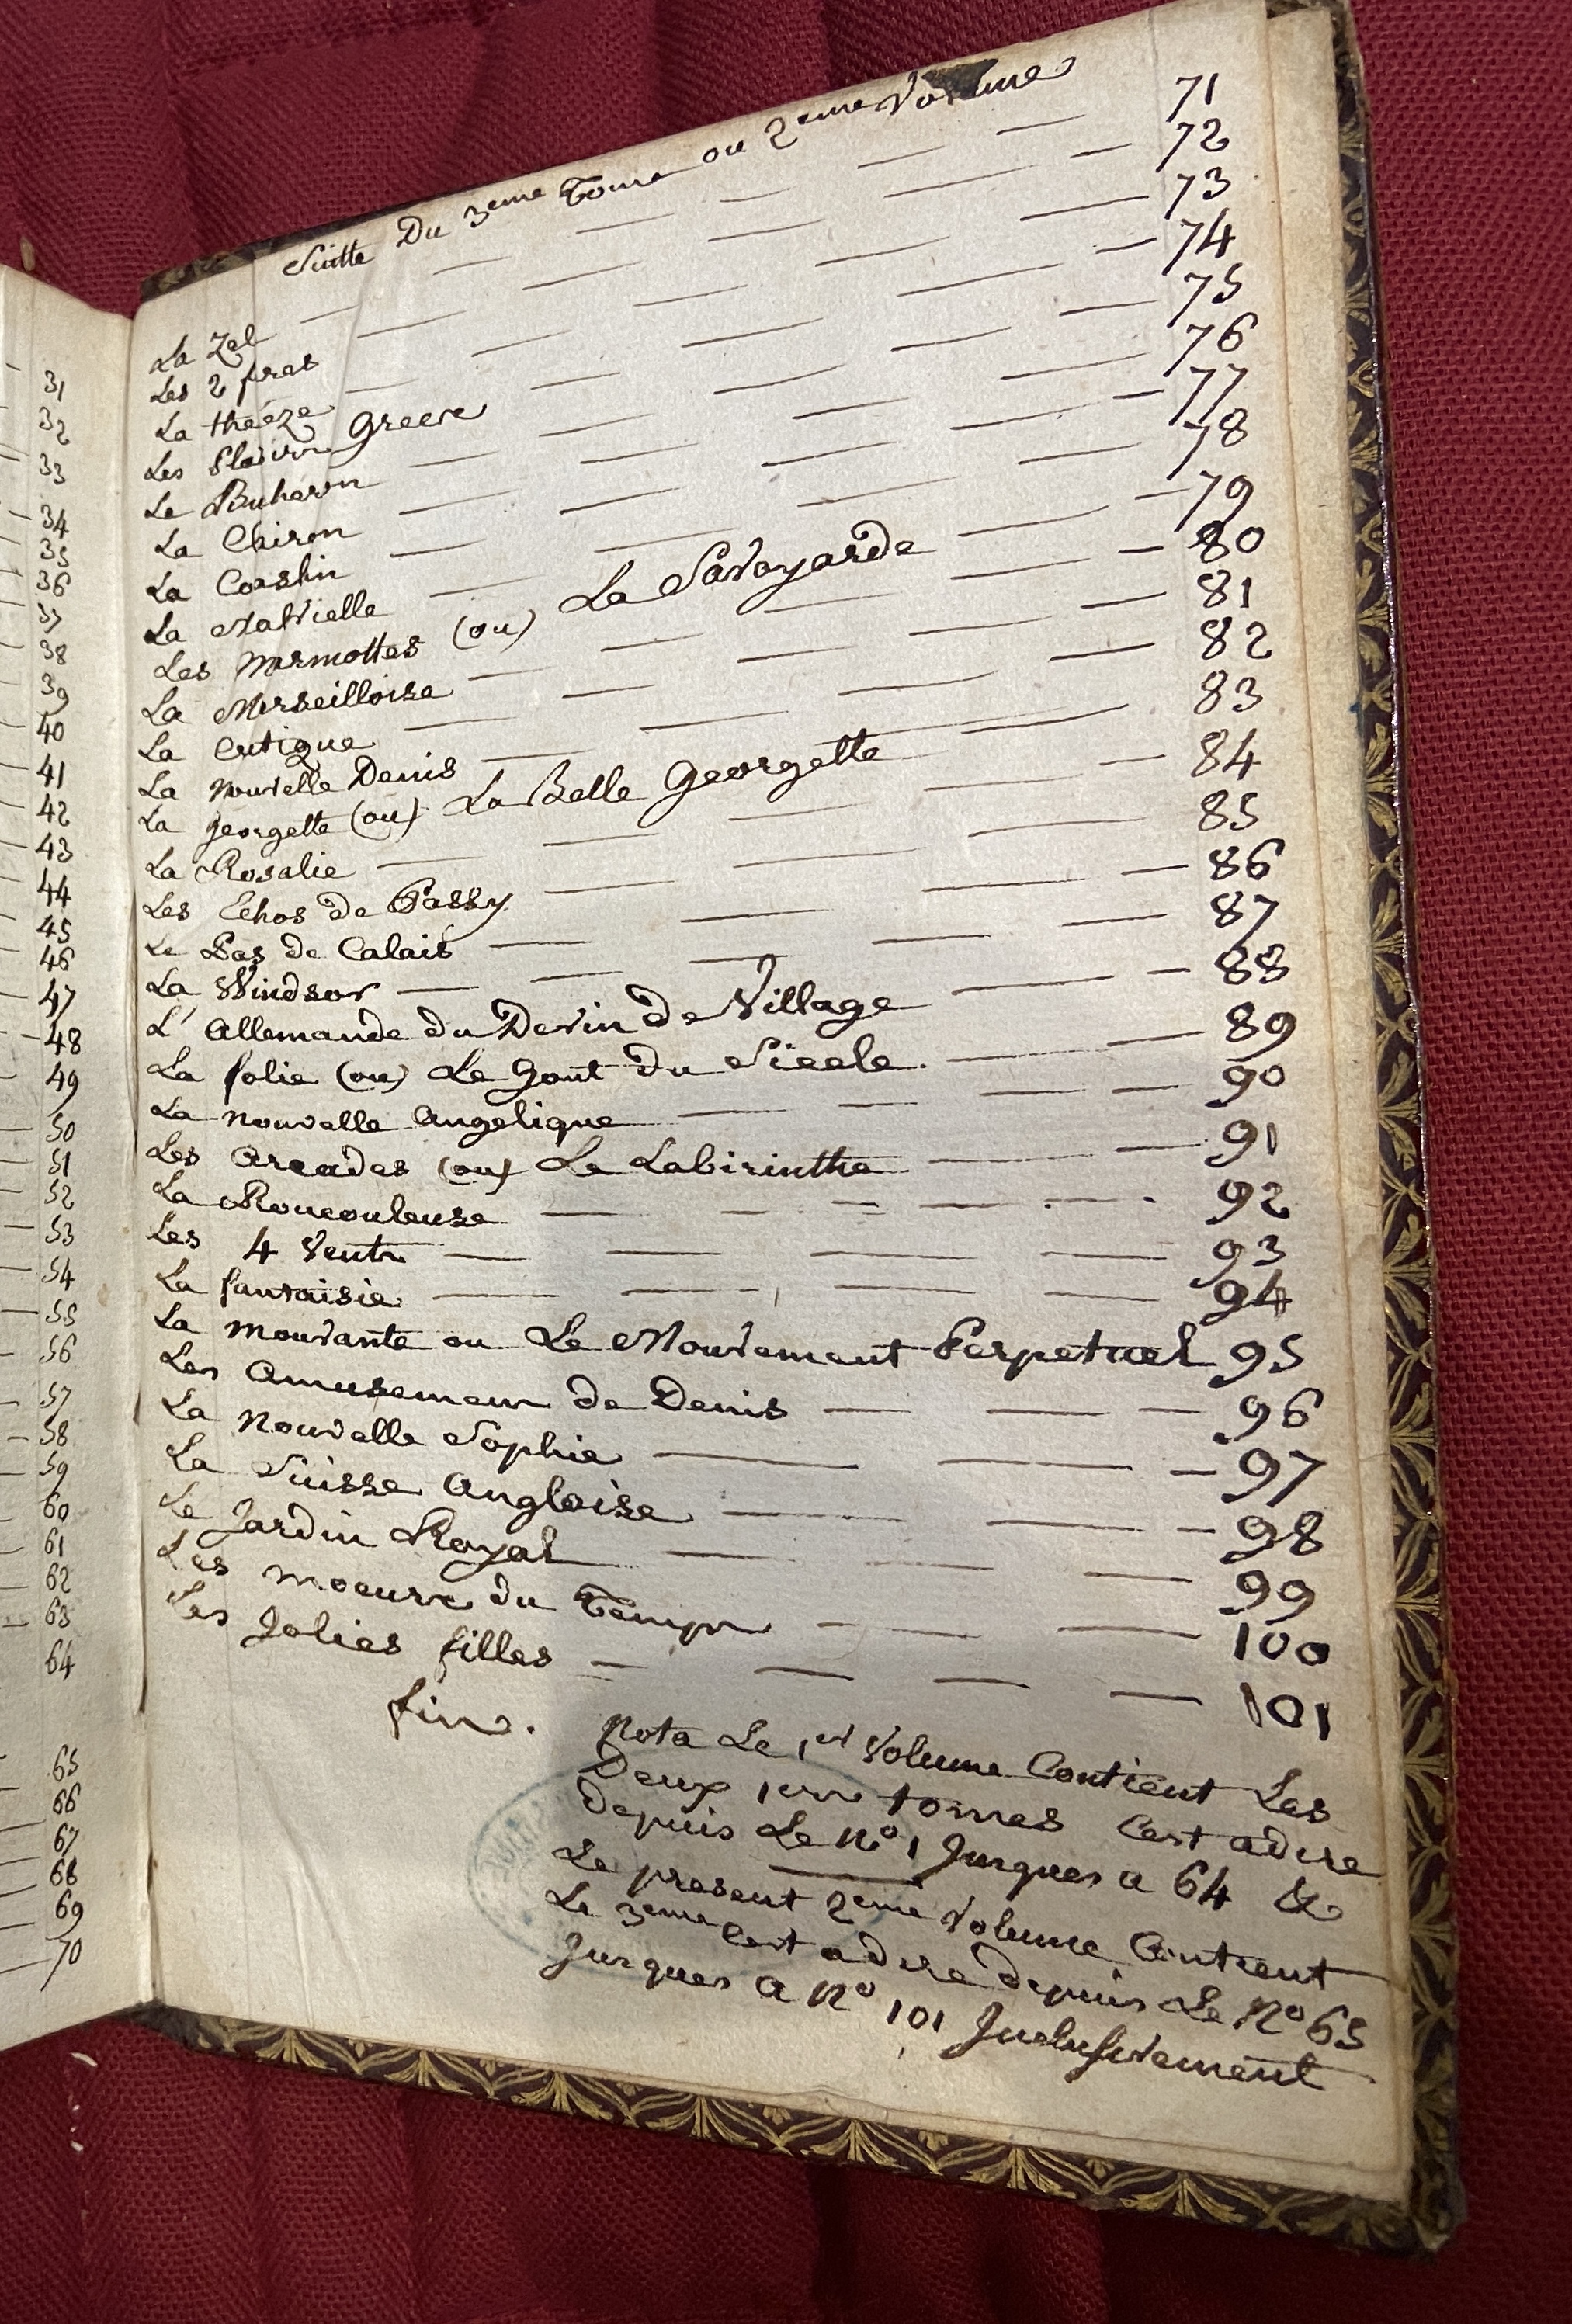 Suitte Du 3eme Tome ou 2eme Volume
La Zel 71
Les 2 freres 72
La theéze 73
Les Plaisirs Grecs 74
Le Buharon 75
La Chiron 76
La Coaslin 77
La Nativelle 78
Les Marmottes (ou) La Savoyarde 79
La Marseilloise 80
La Critique 81
La Nouvelle Denis 82
La Georgette (ou) La Belle Georgette 83
La Rosalie 84
Les Echos de Passy 85
Le Pas de Calais 86
La Windsor 87
L'Allemande du Devin de Village 88
La folie (ou) Le Gout du Siecle. 89
La nouvelle Angelique 90
Les Arcades (ou) Le Labirinthe 91
La Roucouleuse 92
Les 4 Vents 93
La fantaisie 94
La mouvante ou Le Mouvement Perpetuel 95
Les Amusemens de Denis 96
La Nouvelle Sophie 97
La Suisse Angloise 98
Le Jardin Royal 99
Les moeurs du Temps 100
Les Jolies filles 101
fin.
Nota Le 1er Volume Contient Les
Deux 1ers tomes C'est adire
depuis Le No 1 Jusques a 64 &
Le present 2eme Volume Contient
Le 3eme C'est adire depuis Le No 65
Jusques a No 101 Inclusivement
31
32
33
34
35
36
37
38
39
40
41
42
43
44
45
46
47
48
49
50
51
52
53
54
55
56
57
58
59
60
61
62
63
64
65
66
67
68
69
70